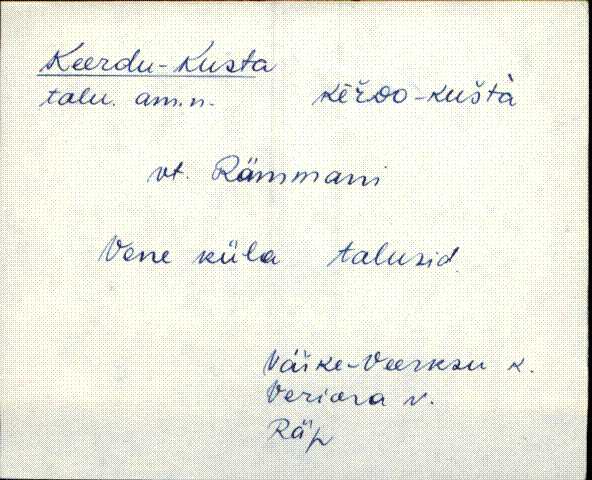 Keerdu-Kusta
talu. am.n. kēŕDO-kuštà
vt. Rämmani
Vene küla talusid.
Väike-Veerksu k.
Veriora v.
Räp